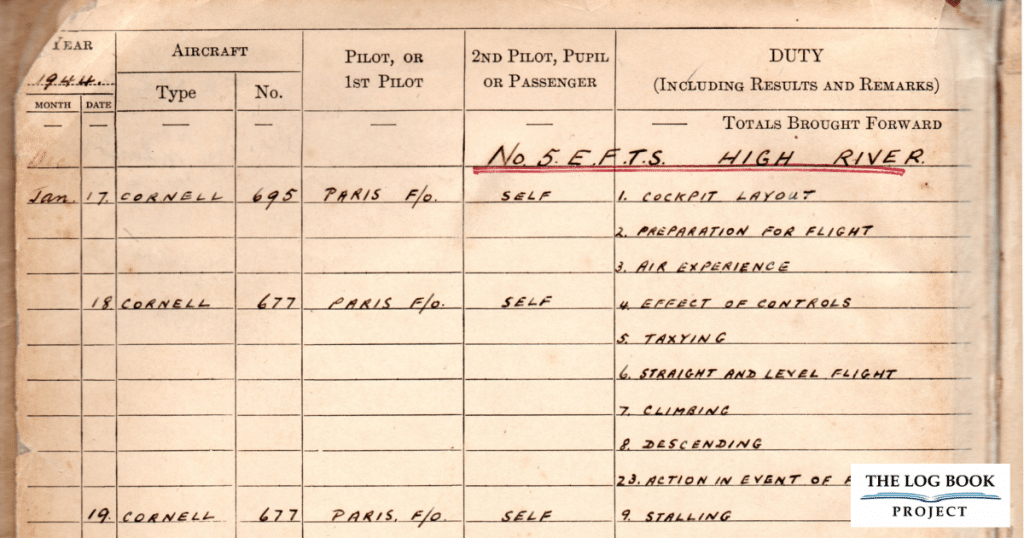 YEAR AIRCRAFT PILOT, OR 2ND PILOT, PUPIL DUTY
1944. 1ST PILOT OR PASSENGER (INCLUDING RESULTS AND REMARKS)
MONTH DATE Type No.
— — — — — TOTALS BROUGHT FORWARD
Dec No 5. E.F.T.S. HIGH RIVER.
Jan. 17. CORNELL 695 PARIS F/O. SELF 1. COCKPIT LAYOUT
2. PREPARATION FOR FLIGHT
3. AIR EXPERIENCE
18 CORNELL 677 PARIS F/O. SELF 4. EFFECT OF CONTROLS
5. TAXYING
6. STRAIGHT AND LEVEL FLIGHT
7. CLIMBING
8. DESCENDING
23. ACTION IN EVENT OF
19. CORNELL 677 PARIS, F/O. SELF 9. STALLING
THE LOG BOOK
PROJECT